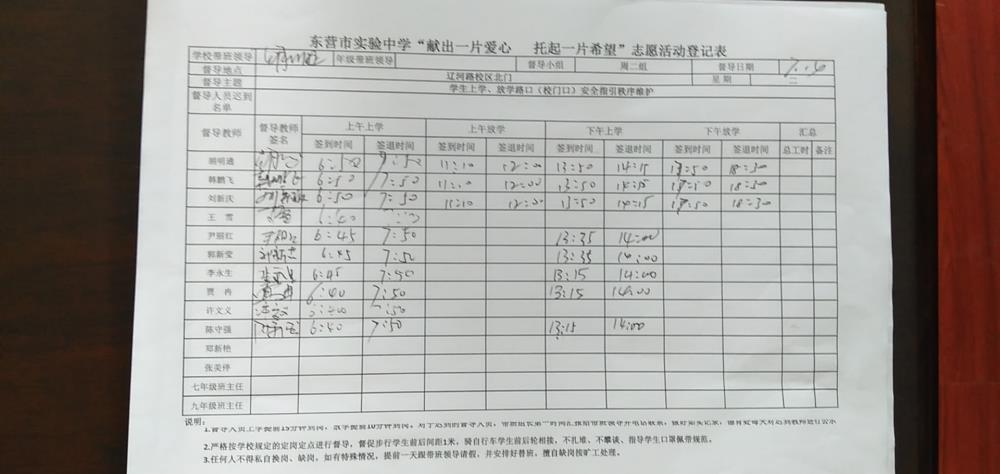 东营市实验中学“献出一片爱心 托起一片希望”志愿活动登记表
学校带班领导 年级带班领导 督导小组 周二组 督导日期
督导地点 辽河路校区北门 星期 二
督导主题 学生上学、放学路口（校门口）安全指引秩序维护
督导人员迟到名单
督导教师 督导教师签名 上午上学 上午放学 下午上学 下午放学 汇总
签到时间 签退时间 签到时间 签退时间 签到时间 签退时间 签到时间 签退时间 总工时 备注
胡明通 6:50 7:50 11:10 12:00 13:50 14:15 17:50 18:30
韩鹏飞 6:50 7:50 11:10 12:00 13:50 14:15 17:50 18:30
刘新庆 6:50 7:50 11:10 12:00 13:50 14:15 17:50 18:30
王雪 6:40
尹丽红 6:45 7:50 13:35 14:00
郭新莹 6:45 7:50 13:35 14:00
李永生 6:45 7:50 13:15 14:00
贾冉 6:40 7:50 13:15 14:00
许文义 7:50
陈守强 6:40 7:50 13:15 14:00
郑新艳
张美停
七年级班主任
九年级班主任
说明：
2.严格按学校规定的定岗定点进行督导，督促步行学生前后间距1米，骑自行车学生前后轮相接，不扎堆、不攀谈、指导学生口罩佩带规范。
3.任何人不得私自换岗、缺岗，如有特殊情况，提前一天跟带班领导请假，并安排好替班，擅自缺岗按旷工处理。